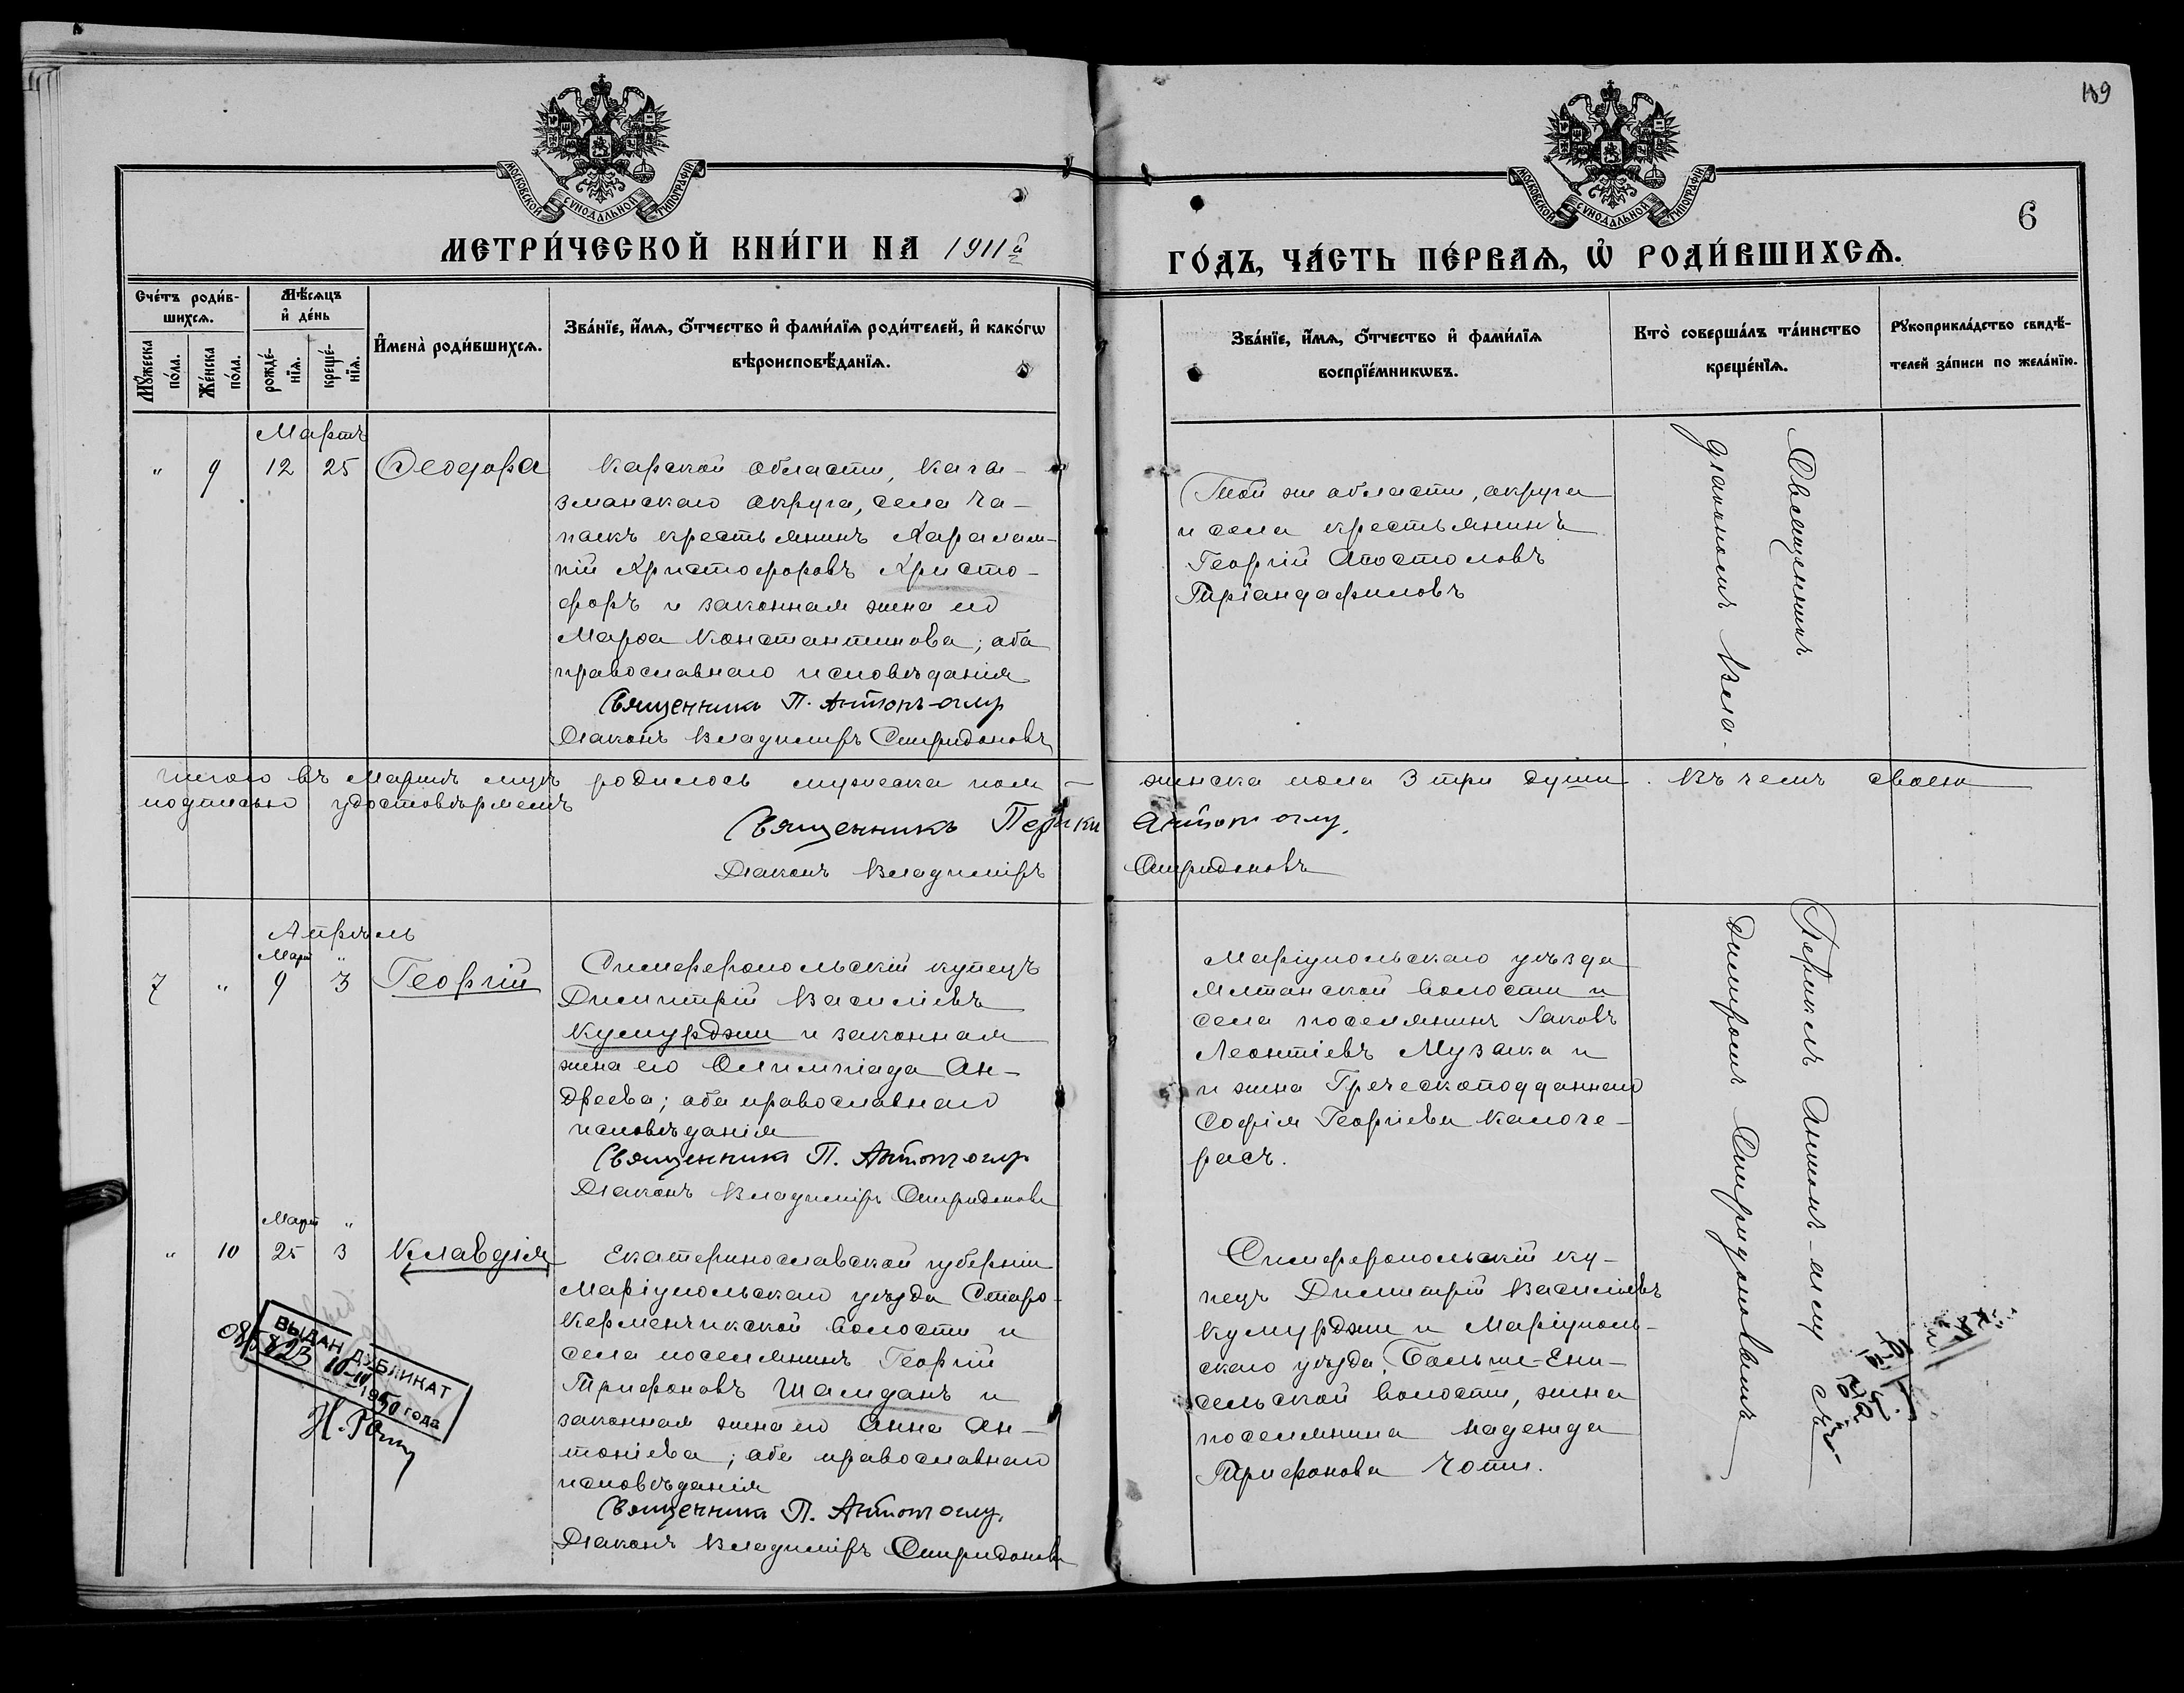 189
МОСКОВСКОЙ СѴНОДАЛЬНОЙ ТИПОГРАФІИ
МОСКОВСКОЙ СѴНОДАЛЬНОЙ ТИПОГРАФІИ
6
МЕТРИ́ЧЕСКОЙ КНИ́ГИ НА 1911й
ГО́ДЪ, ЧА́СТЬ ПЕ́РВАѦ, Ѡ҆ РОДИ́ВШИХСѦ.
Сче́тъ роди́в-
шихсѧ.
Мꙋ́жеска по́ла.
Же́нска по́ла.
Мѣ́сѧцъ
и҆ де́нь
рожде́-
нїѧ.
креще́-
нїѧ.
И҆мена̀ роди́вшихсѧ.
Зва́нїе, и҆́мѧ, ѻ҆́тчество и҆ фами́лїѧ роди́телей, и҆ како́гѡ
вѣроисповѣ́данїѧ.
Зва́нїе, и҆́мѧ, ѻ҆́тчество и҆ фами́лїѧ
воспрїе́мникѡвъ.
Кто̀ соверша́лъ та́инство
креще́нїѧ.
Рꙋкоприкла́дство свидѣ́-
телей за́писи по жела́нїю.
Мартъ
" 9 12 25 Ѳеодора
Карской области, Кага-
зманскаго округа, села Ча-
паскъ крестьянинъ Харалам-
пій Христофоровъ Христо-
форъ и законная жена его
Марѳа Константинова; оба
православнаго исповѣданія
Священникъ П. Антонъ-оглу
Діаконъ Владиміръ Спиридоновъ
Той же области, округа
и села крестьянинъ
Георгій Апостоловъ
Тріандафиловъ
Священникъ
діакономъ Вла-
Итого въ Мартѣ мцѣ родилось мужеска пола — женска пола 3 три души. Въ чемъ своею
подписью удостовѣряемъ
Священникъ Перикл Антонъ оглу.
Діаконъ Владиміръ Спиридоновъ
Апрѣль
Март "
7 " 9 3 Георгій
Симферопольскій купецъ
Димитрій Василіевъ
Кумурджи и законная
жена его Олимпіада Ан-
дреева; оба православнаго
исповѣданія
Священникъ П. Антонъ оглу
Діаконъ Владиміръ Спиридоновъ
Маріупольскаго уѣзда
Ялтанской волости и
села поселянинъ Іаковъ
Леонтіевъ Музака и
и жена Греческоподданнаго
Софія Георгіева Калоге-
расъ.
Периклъ Антонъ-оглу съ
диміромъ Спиридоновымъ
Март "
" 10 25 3 Клавдія
Екатеринославской губерніи
Маріупольскаго уѣзда Старо-
Керменчикской волости и
села поселянинъ Георгій
Трифоновъ Шалданъ и
законная жена его Анна Ан-
тоніева; оба православнаго
исповѣданія
Священникъ П. Антонъ оглу.
Діаконъ Владиміръ Спиридоновъ
Симферопольскій ку-
пецъ Димитрій Василіевъ
Кумурджи и Маріуполь-
скаго уѣзда, Больше-Ени-
сельской волости, жена
поселянина Надежда
Трифонова Чоти.
ВЫДАН ДУБЛИКАТ
1950 года